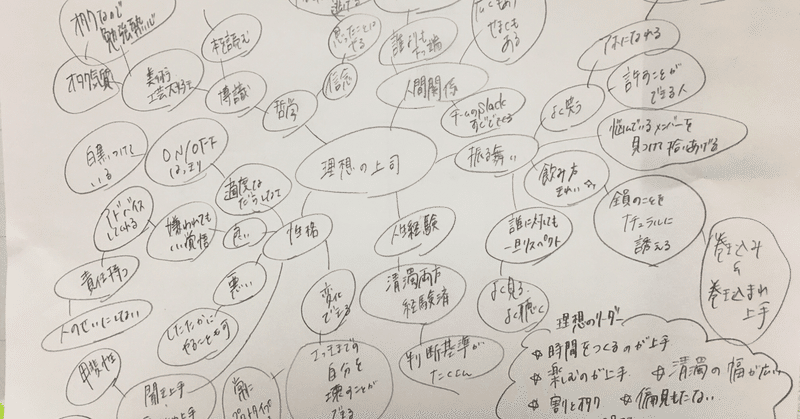 オタクなので
勉強熱心
オタク気質
美術
工芸大好き
本を読む
博識
哲学
思ったことは
やる
信念
誰よりも
人間関係
チームのslack
すぐできる
理想の上司
振る舞い
よく笑う
アホになれる
許すことが
できる人
悩んでいるメンバーを
見つけて拾いあげる
飲み方
きれい
全員のことを
ナチュラルに
誘える
巻き込み
&
巻き込まれ
上手
誰に対しても
一旦リスペクト
よく見る
よく聴く
人生経験
清濁両方
経験済
判断基準が
たくさん
性格
適度な
だらしなさ
ON/OFF
はっきり
白黒つけて
いる
アドバイス
してくれる
嫌われても
いい覚悟
良い
悪い
責任持つ
人のせいにしない
したたかに
やることも可
変化
できる
さっきまでの
自分を
壊すことが
できる
甲斐性
聞き上手
常に
理想のリーダー
☆時間をつくるのが上手
☆楽しむのが上手
☆清濁の幅が広い
☆割とオタク
☆偏見もたない